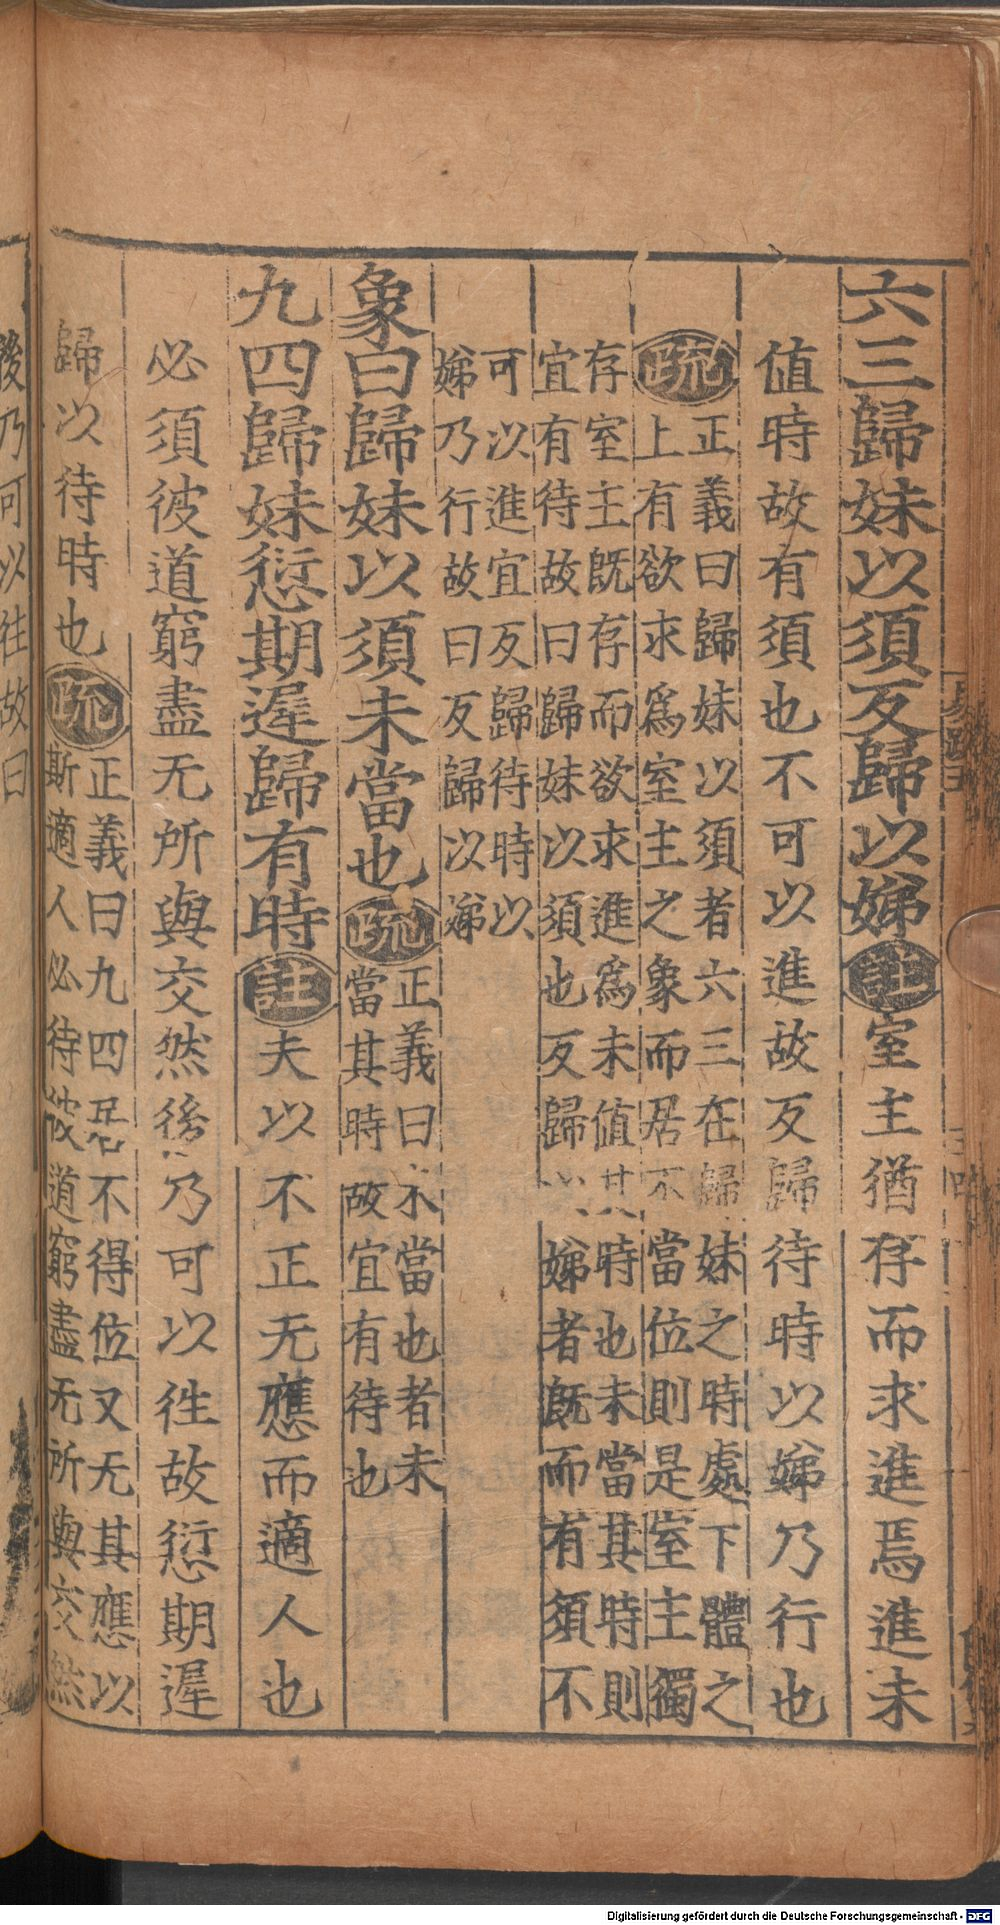 六三歸妹以須反歸以娣註室主猶存而求進焉進未
值時故有須也不可以進故反歸待時以娣乃行也
疏正義曰歸妹以須者六三在歸妹之時處下體之
上有欲求爲室主之象而居不當位則是室主獨
存室主既存而欲求進爲未值其時也未當其時則
宜有待故曰歸妹以須也反歸以娣者既而有須不
可以進宜反歸待時以
娣乃行故曰反歸以娣
象曰歸妹以須未當也疏正義曰未當也者未
當其時故宜有待也
九四歸妹愆期遲歸有時註夫以不正无應而適人也
必須彼道窮盡无所與交然後乃可以徃故愆期遲
歸以待時也疏正義曰九四居不得位又无其應以
斯適人必待彼道窮盡无所與交然
後乃可以往故曰
Digitalisierung gefördert durch die Deutsche Forschungsgemeinschaft - DFG